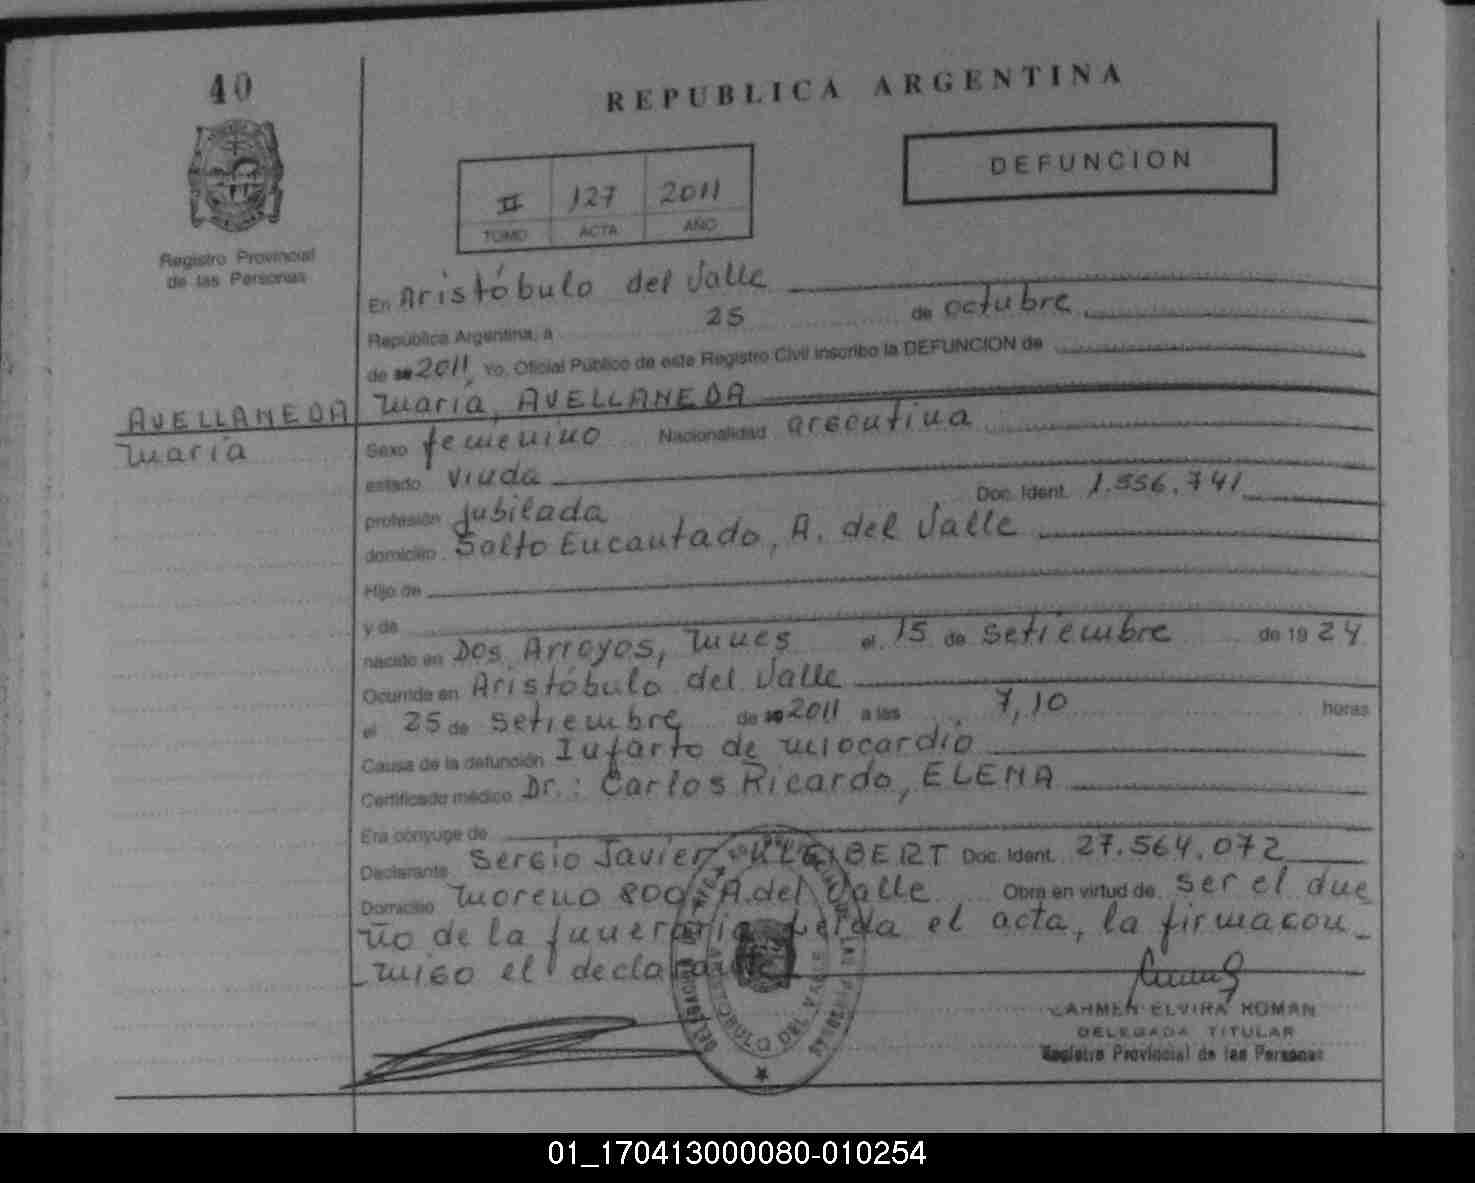 40
REPUBLICA ARGENTINA
DEFUNCION
II 127 2011
TOMO ACTA AÑO
Registro Provincial
de las Personas
En Aristóbulo del Valle
República Argentina, a 25 de octubre
de 2011, Yo, Oficial Público de este Registro Civil inscribo la DEFUNCION de
AVELLANEDA
María
María, AVELLANEDA
Sexo femenino Nacionalidad argentina
estado viuda
profesión jubilada Doc. Ident. 1.556.741
domicilio Salto Encantado, A. del Valle
Hijo de
y de
nacido en Dos Arroyos, Mnes el 15 de setiembre de 1924
Ocurrida en Aristóbulo del Valle
el 25 de setiembre de 2011 a las 7,10 horas
Causa de la defunción Infarto de miocardio
Certificado médico Dr.: Carlos Ricardo, ELENA
Era cónyuge de
Declarante Sergio Javier Doc. Ident. 27.564.072
Domicilio Moreno 800, A. del Valle Obra en virtud de ser el due
ño de la funeraria Leída el acta, la firma con
migo el declarante
CARMEN ELVIRA ROMAN
DELEGADA TITULAR
Registro Provincial de las Personas
ARISTOBULO DEL VALLE
01_170413000080-010254